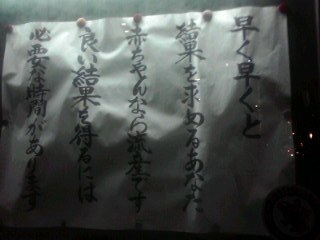 早く早くと
結果を求めるあなた
赤ちゃんなら流産です
良い結果を得るには
必要な時間があります